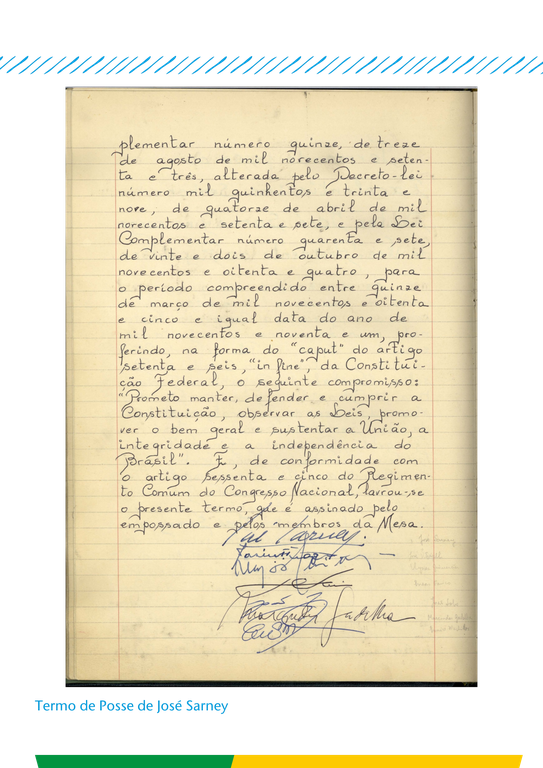 plementar número quinze, de treze
de agosto de mil novecentos e seten-
ta e três, alterada pelo Decreto-lei
número mil quinhentos e trinta e
nove, de quatorze de abril de mil
novecentos e setenta e sete, e pela Lei
Complementar número quarenta e sete,
de vinte e dois de outubro de mil
novecentos e oitenta e quatro, para
o período compreendido entre quinze
de março de mil novecentos e oitenta
e cinco e igual data do ano de
mil novecentos e noventa e um, pro-
ferindo, na forma do "caput" do artigo
setenta e seis, "in fine", da Constitui-
ção Federal, o seguinte compromisso:
"Prometo manter, defender e cumprir a
Constituição, observar as Leis, promo-
ver o bem geral e sustentar a União, a
integridade e a independência do
Brasil". E, de conformidade com
o artigo sessenta e cinco do Regimen-
to Comum do Congresso Nacional, lavrou-se
o presente termo, que é assinado pelo
empossado e pelos membros da Mesa.
José Sarney.
Termo de Posse de José Sarney